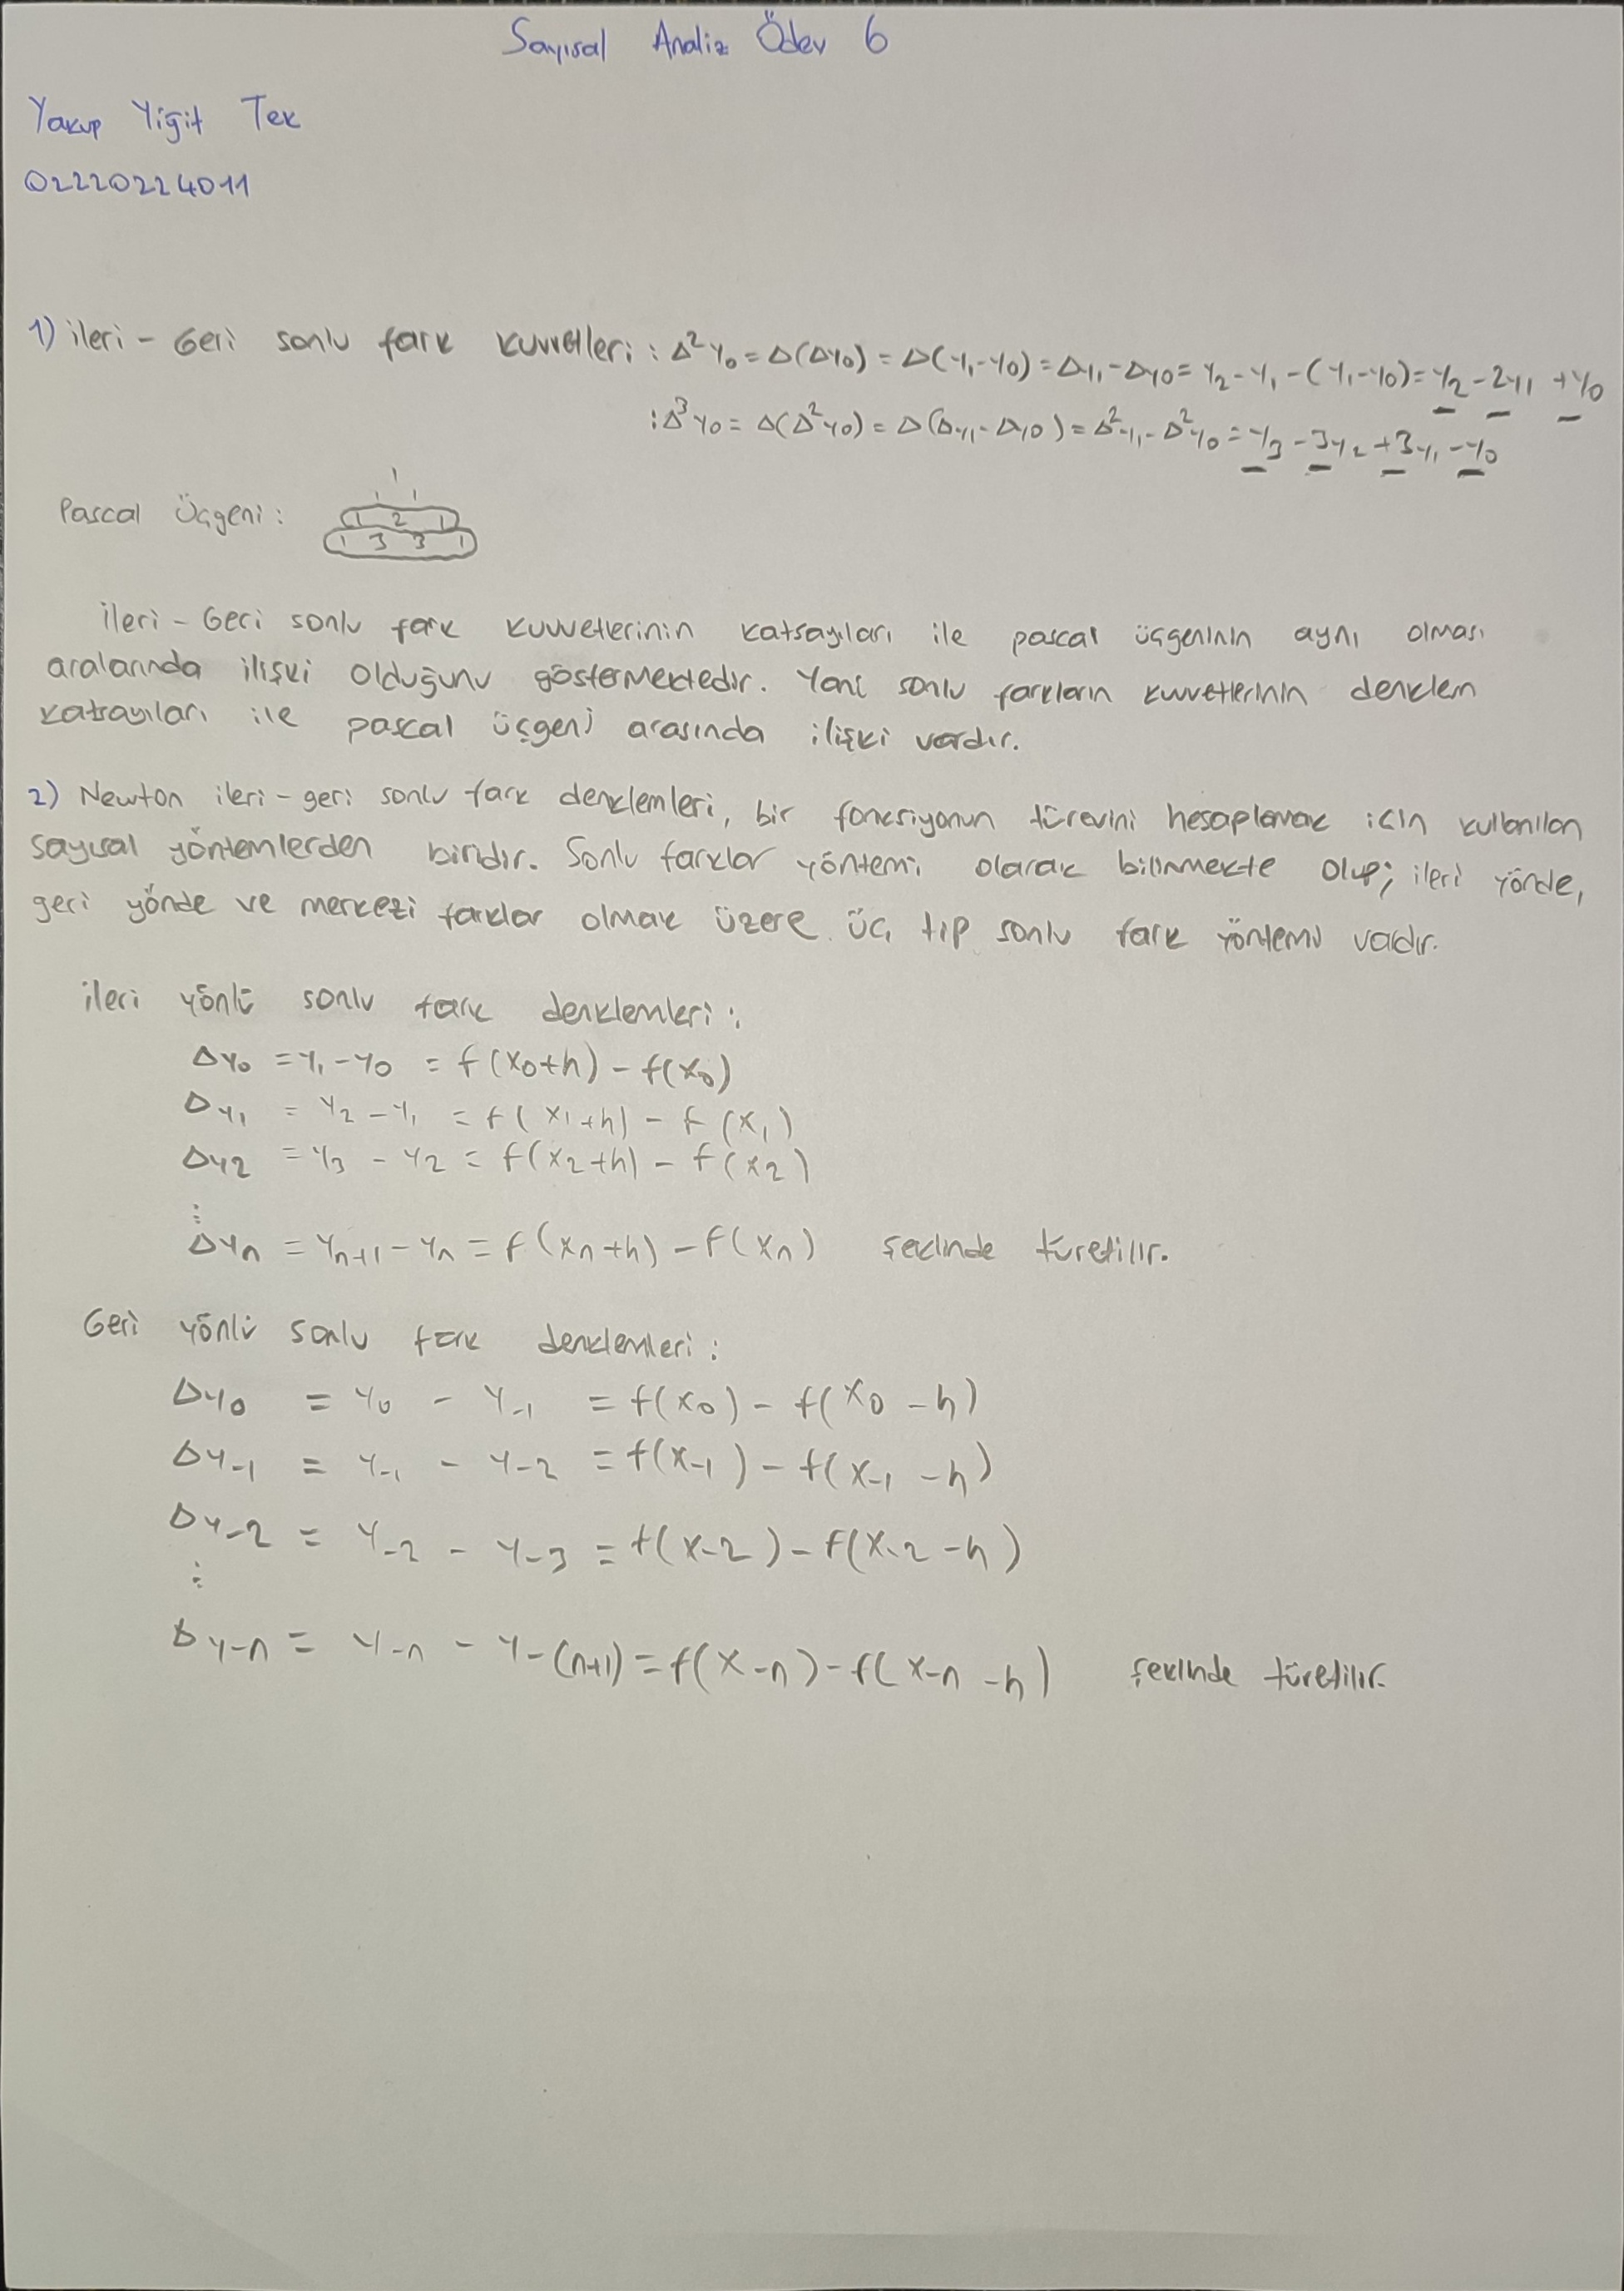 Sayısal Analiz Ödev 6
Yakup Yiğit Tek
02220224011
1) ileri - Geri sonlu fark kuvvetleri : Δ²y₀ = Δ(Δy₀) = Δ(y₁-y₀) = Δy₁-Δy₀ = y₂-y₁-(y₁-y₀) = y₂-2y₁+y₀
: Δ³y₀ = Δ(Δ²y₀) = Δ(Δy₁-Δy₀) = Δ²y₁-Δ²y₀ = y₃-3y₂+3y₁-y₀
1
1 1
Pascal Üçgeni : 1 2 1
1 3 3 1
ileri - Geri sonlu fark kuvvetlerinin katsayıları ile pascal üçgeninin aynı olması
aralarında ilişki olduğunu göstermektedir. Yani sonlu farkların kuvvetlerinin denklem
katsayıları ile pascal üçgeni arasında ilişki vardır.
2) Newton ileri - geri sonlu fark denklemleri, bir fonksiyonun türevini hesaplamak için kullanılan
sayısal yöntemlerden biridir. Sonlu farklar yöntemi olarak bilinmekte olup; ileri yönde,
geri yönde ve merkezi farklar olmak üzere üç tip sonlu fark yöntemi vardır.
ileri yönlü sonlu fark denklemleri :
Δy₀ = y₁-y₀ = f(x₀+h) - f(x₀)
Δy₁ = y₂-y₁ = f(x₁+h) - f(x₁)
Δy₂ = y₃-y₂ = f(x₂+h) - f(x₂)
⋮
Δyₙ = yₙ₊₁-yₙ = f(xₙ+h) - f(xₙ) şeklinde türetilir.
Geri yönlü sonlu fark denklemleri :
Δy₀ = y₀ - y₋₁ = f(x₀) - f(x₀-h)
Δy₋₁ = y₋₁ - y₋₂ = f(x₋₁) - f(x₋₁-h)
Δy₋₂ = y₋₂ - y₋₃ = f(x₋₂) - f(x₋₂-h)
⋮
Δy₋ₙ = y₋ₙ - y₋₍ₙ₊₁₎ = f(x₋ₙ) - f(x₋ₙ-h) şeklinde türetilir.